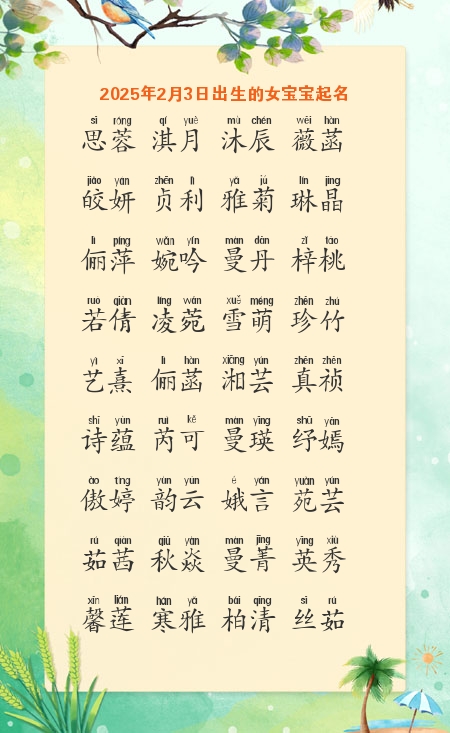 2025年2月3日出生的女宝宝起名
sī róng qí yuè mù chén wēi hàn
思蓉 淇月 沐辰 薇菡
jiǎo yán zhēn lì yǎ jú lín jīng
皎妍 贞利 雅菊 琳晶
lì píng wǎn yín màn dān zǐ táo
俪萍 婉吟 曼丹 梓桃
ruò qiàn líng wǎn xuě méng zhēn zhú
若倩 凌菀 雪萌 珍竹
yì xī lì hàn xiāng yún zhēn zhēn
艺熹 俪菡 湘芸 真祯
shī yùn ruì kě màn yīng shū yān
诗蕴 芮可 曼瑛 纾嫣
ào tíng yùn yún é yán yuàn yún
傲婷 韵云 娥言 苑芸
rú qiàn qiū yàn màn jīng yīng xiù
茹茜 秋焱 曼菁 英秀
xīn lián hán yǎ bǎi qīng sī rú
馨莲 寒雅 柏清 丝茹